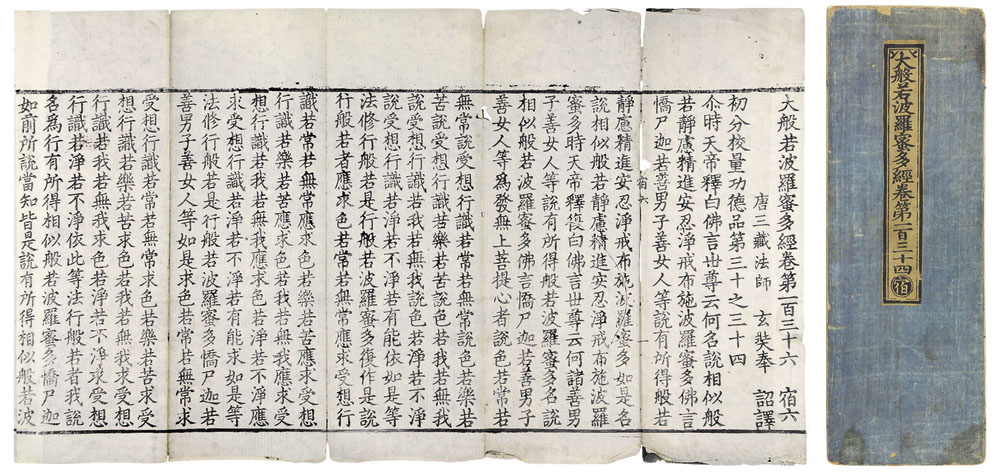 大般若波羅蜜多經卷第一百三十六　宿六
唐三藏法師　玄奘奉　詔譯
初分校量功德品第三十之三十四
尒時天帝釋白佛言世尊云何名說相似般
若靜慮精進安忍淨戒布施波羅蜜多佛言
憍尸迦若善男子善女人等說有所得般若
靜慮精進安忍淨戒布施波羅蜜多如是名
說相似般若靜慮精進安忍淨戒布施波羅
蜜多時天帝釋復白佛言世尊云何諸善男
子善女人等說有所得般若波羅蜜多名說
相似般若波羅蜜多佛言憍尸迦若善男子
善女人等爲發無上菩提心者說色若常若
無常說受想行識若常若無常說色若樂若
苦說受想行識若樂若苦說色若我若無我
說受想行識若我若無我說色若淨若不淨
說受想行識若淨若不淨若有能依如是等
法修行般若是行般若波羅蜜多復作是說
行般若者應求色若常若無常應求受想行
識若常若無常應求色若樂若苦應求受想
行識若樂若苦應求色若我若無我應求受
想行識若我若無我應求色若淨若不淨應
求受想行識若淨若不淨若有能求如是等
法修行般若是行般若波羅蜜多憍尸迦若
善男子善女人等如是求色若常若無常求
受想行識若常若無常求色若樂若苦求受
想行識若樂若苦求色若我若無我求受想
行識若我若無我求色若淨若不淨求受想
行識若淨若不淨依此等法行般若者我說
名爲行有所得相似般若波羅蜜多憍尸迦
如前所說當知皆是說有所得相似般若波
大般若波羅蜜多經卷第一百三十四 宿